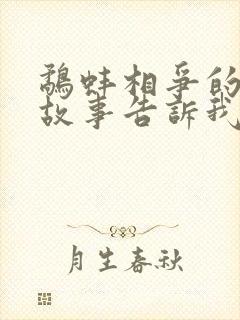 鷸蚌相爭的
故事告訴我
月生春秋